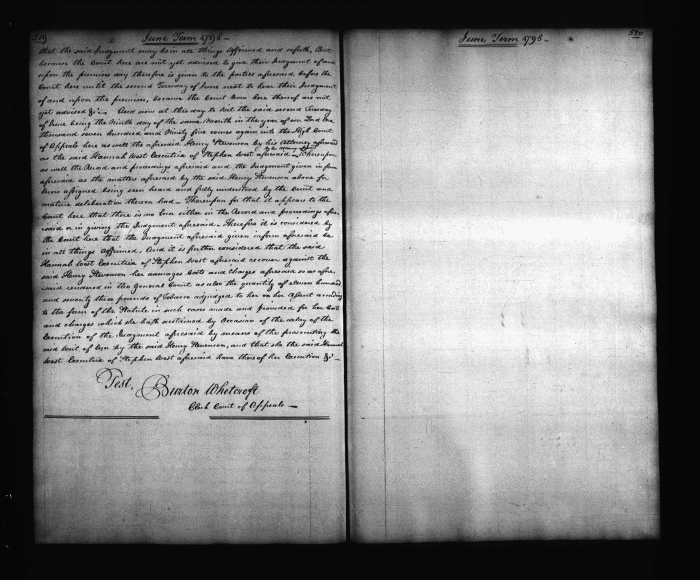 519 June Term 1795 —
that the said Judgment may be in all things Affirmed and so forth. But
because the Court here are not yet advised to give their Judgment of and
upon the premises day therefore is given to the parties aforesaid before the
Court here until the second Tuesday of June next to hear their Judgment
of and upon the premises, because the Court now here thereof are not
yet advised &c. And now at this day to Wit the said second Tuesday
of June being the Ninth day of the same Month in the year of our Lord One
thousand seven hundred and Ninety five comes again into the High Court
of Appeals here as well the aforesaid Henry Stevenson by his Attorney aforesaid
as the said Hannah West Executrix of Stephen West aforesaid by her Attorney aforesaid Whereupon
as well the Record and proceedings aforesaid and the Judgment given in form
aforesaid as the matters aforesaid by the said Henry Stevenson above for
Error assigned being seen heard and fully understood by the Court and
mature deliberation thereon had — Thereupon for that it appears to the
Court here that there is no Error either in the Record and proceedings afore
said or in giving the Judgment aforesaid — Therefore it is considered by
the Court here that the Judgment aforesaid given in form aforesaid be
in all things Affirmed. And it is further considered that the said
Hannah West Executrix of Stephen West aforesaid recover against the
said Henry Stevenson her damages Costs and Charges aforesaid so as afore
said rendered in the General Court as also the quantity of eleven hundred
and seventy three pounds of Tobacco adjudged to her on her Assent according
to the form of the Statute in such cases made and provided for her Costs
and charges which she hath sustained by Occasion of the delay of the
Execution of the Judgment aforesaid by means of the prosecuting the
said Writ of Error by the said Henry Stevenson, and that she the said Hannah
West Executrix of Stephen West aforesaid have thereof her Execution &c —
Test, Burton Whetcroft
Clerk Court of Appeals —
June Term 1795 — 520